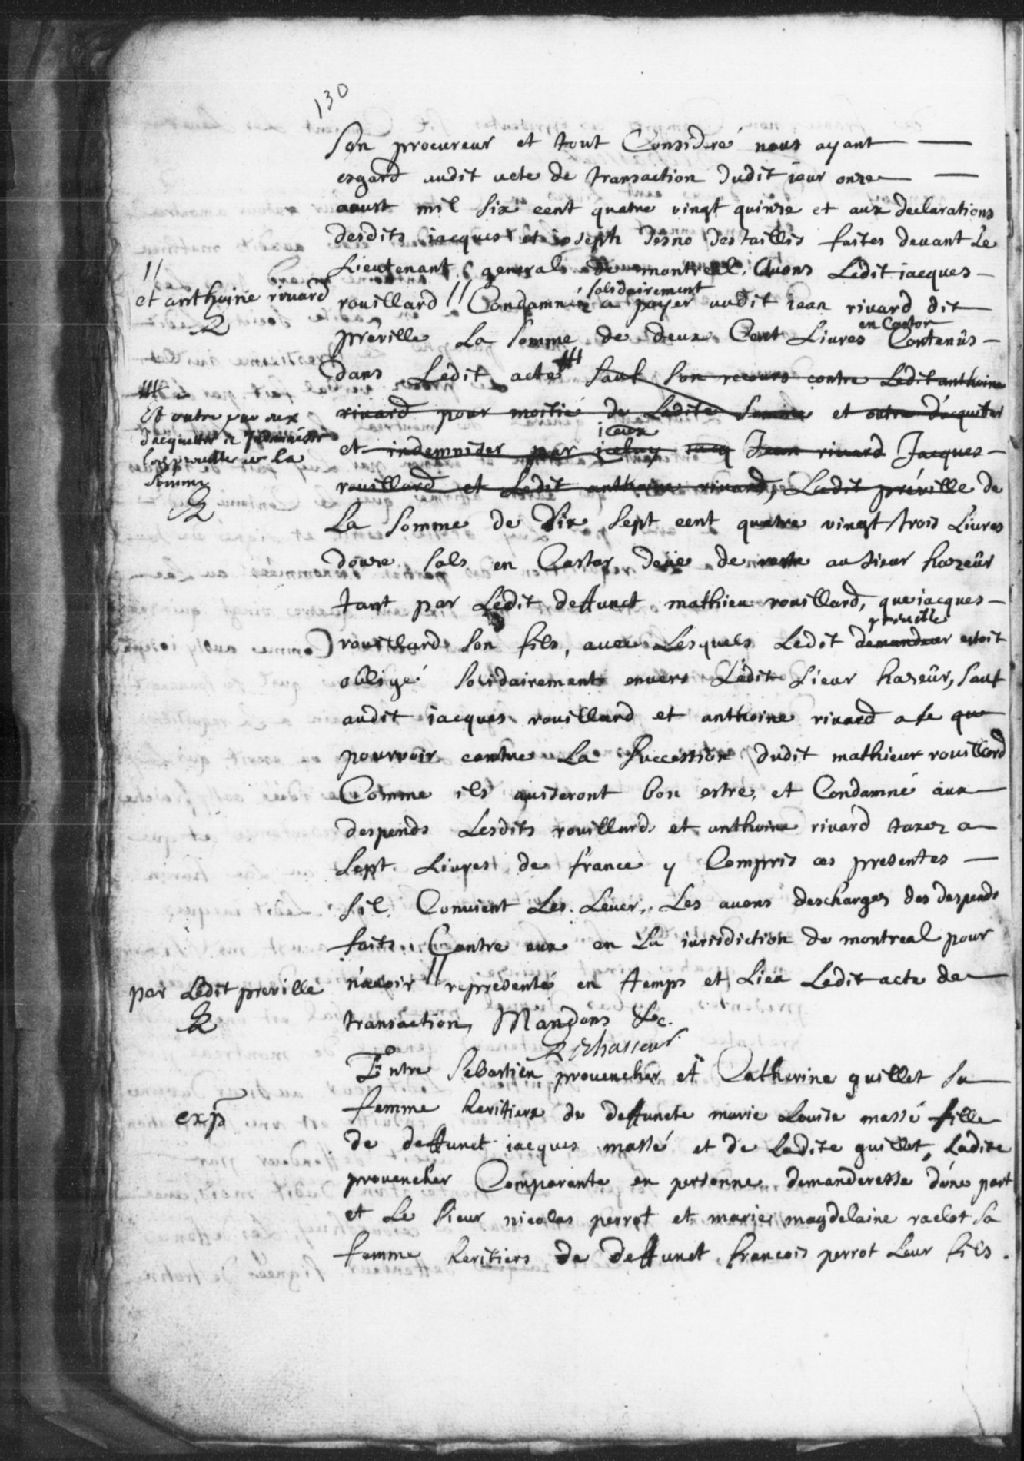 130
Son procureur et tout Consideré nous ayant
esgard audit acte de transaction dudit iour onze
aoust mil six cent quatre vingt quinze et aux declarations
desdits iacques et ioseph desno destaillis faites devant le
Lieutenant general de montreal, Avons Ledit iacques
//
et anthoine rivard
rouillard // Condamnéz solidairement a payer audit iean rivard dit
preville La somme de deux Cent Livres en Castor Contenûs
dans Ledit acte # sauf son recours contre Ledit anthoine
#
Et outre par eux
dacquitter et Indemniser
Ledit preville de La
Somme
rivard pour moitié de Ladite somme et outre d'acquiter
et indemnider par iceluy iceux iacq Jean rivard Jacques
rouillard et Ledit anthoine rivard, Ledit préville de
La somme de Dix sept cent quatre vingt trois Livres
douze sols en Castor deüe de reste au sieur hazeûr
tant par Ledit deffunct mathieu rouillard, que iacques
rouillard son fils, avec Lesquels Ledit demandeur preville estoit
obligé solidairement envers Ledit sieur hazeûr, sauf
audit iacques rouillard et anthoine rivard a se
pourvoir contre La succession dudit mathieur rouillard
Comme ils aviseront bon estre, et Condamné aux
despends Lesdits rouillard et anthoine rivard taxez a
sept Livres de france y Compris ces presentes
sil Convient Les Lever, Les avons deschargez des despends
faits Contre eux en La iurisdiction de montreal pour
par Ledit preville
n'avoir // representé en temps et Lieu Ledit acte de
transaction, Mandons &c.
Entre Sebastien provencher et Catherine guillet sa
exp
femme heritiere de deffuncte marie Louise massé fille
de deffunct iacques massé et de Ladite guillet, Ladite
provencher Comparante en personne demanderesse d'une part
et Le sieur nicolas perrot et marie magdelaine raclot sa
femme heritiers de deffunct francois perrot Leur fils